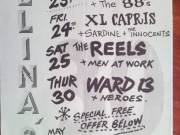 23RD + THE 88's
FRI. XL CAPRIS
24TH + SARDINE + THE INNOCENTS
SAT THE REELS
25 + MEN AT WORK
THUR WARD 13
30 + HEROES.
SPECIAL FREE
OFFER BELOW
MAY
ELINA,